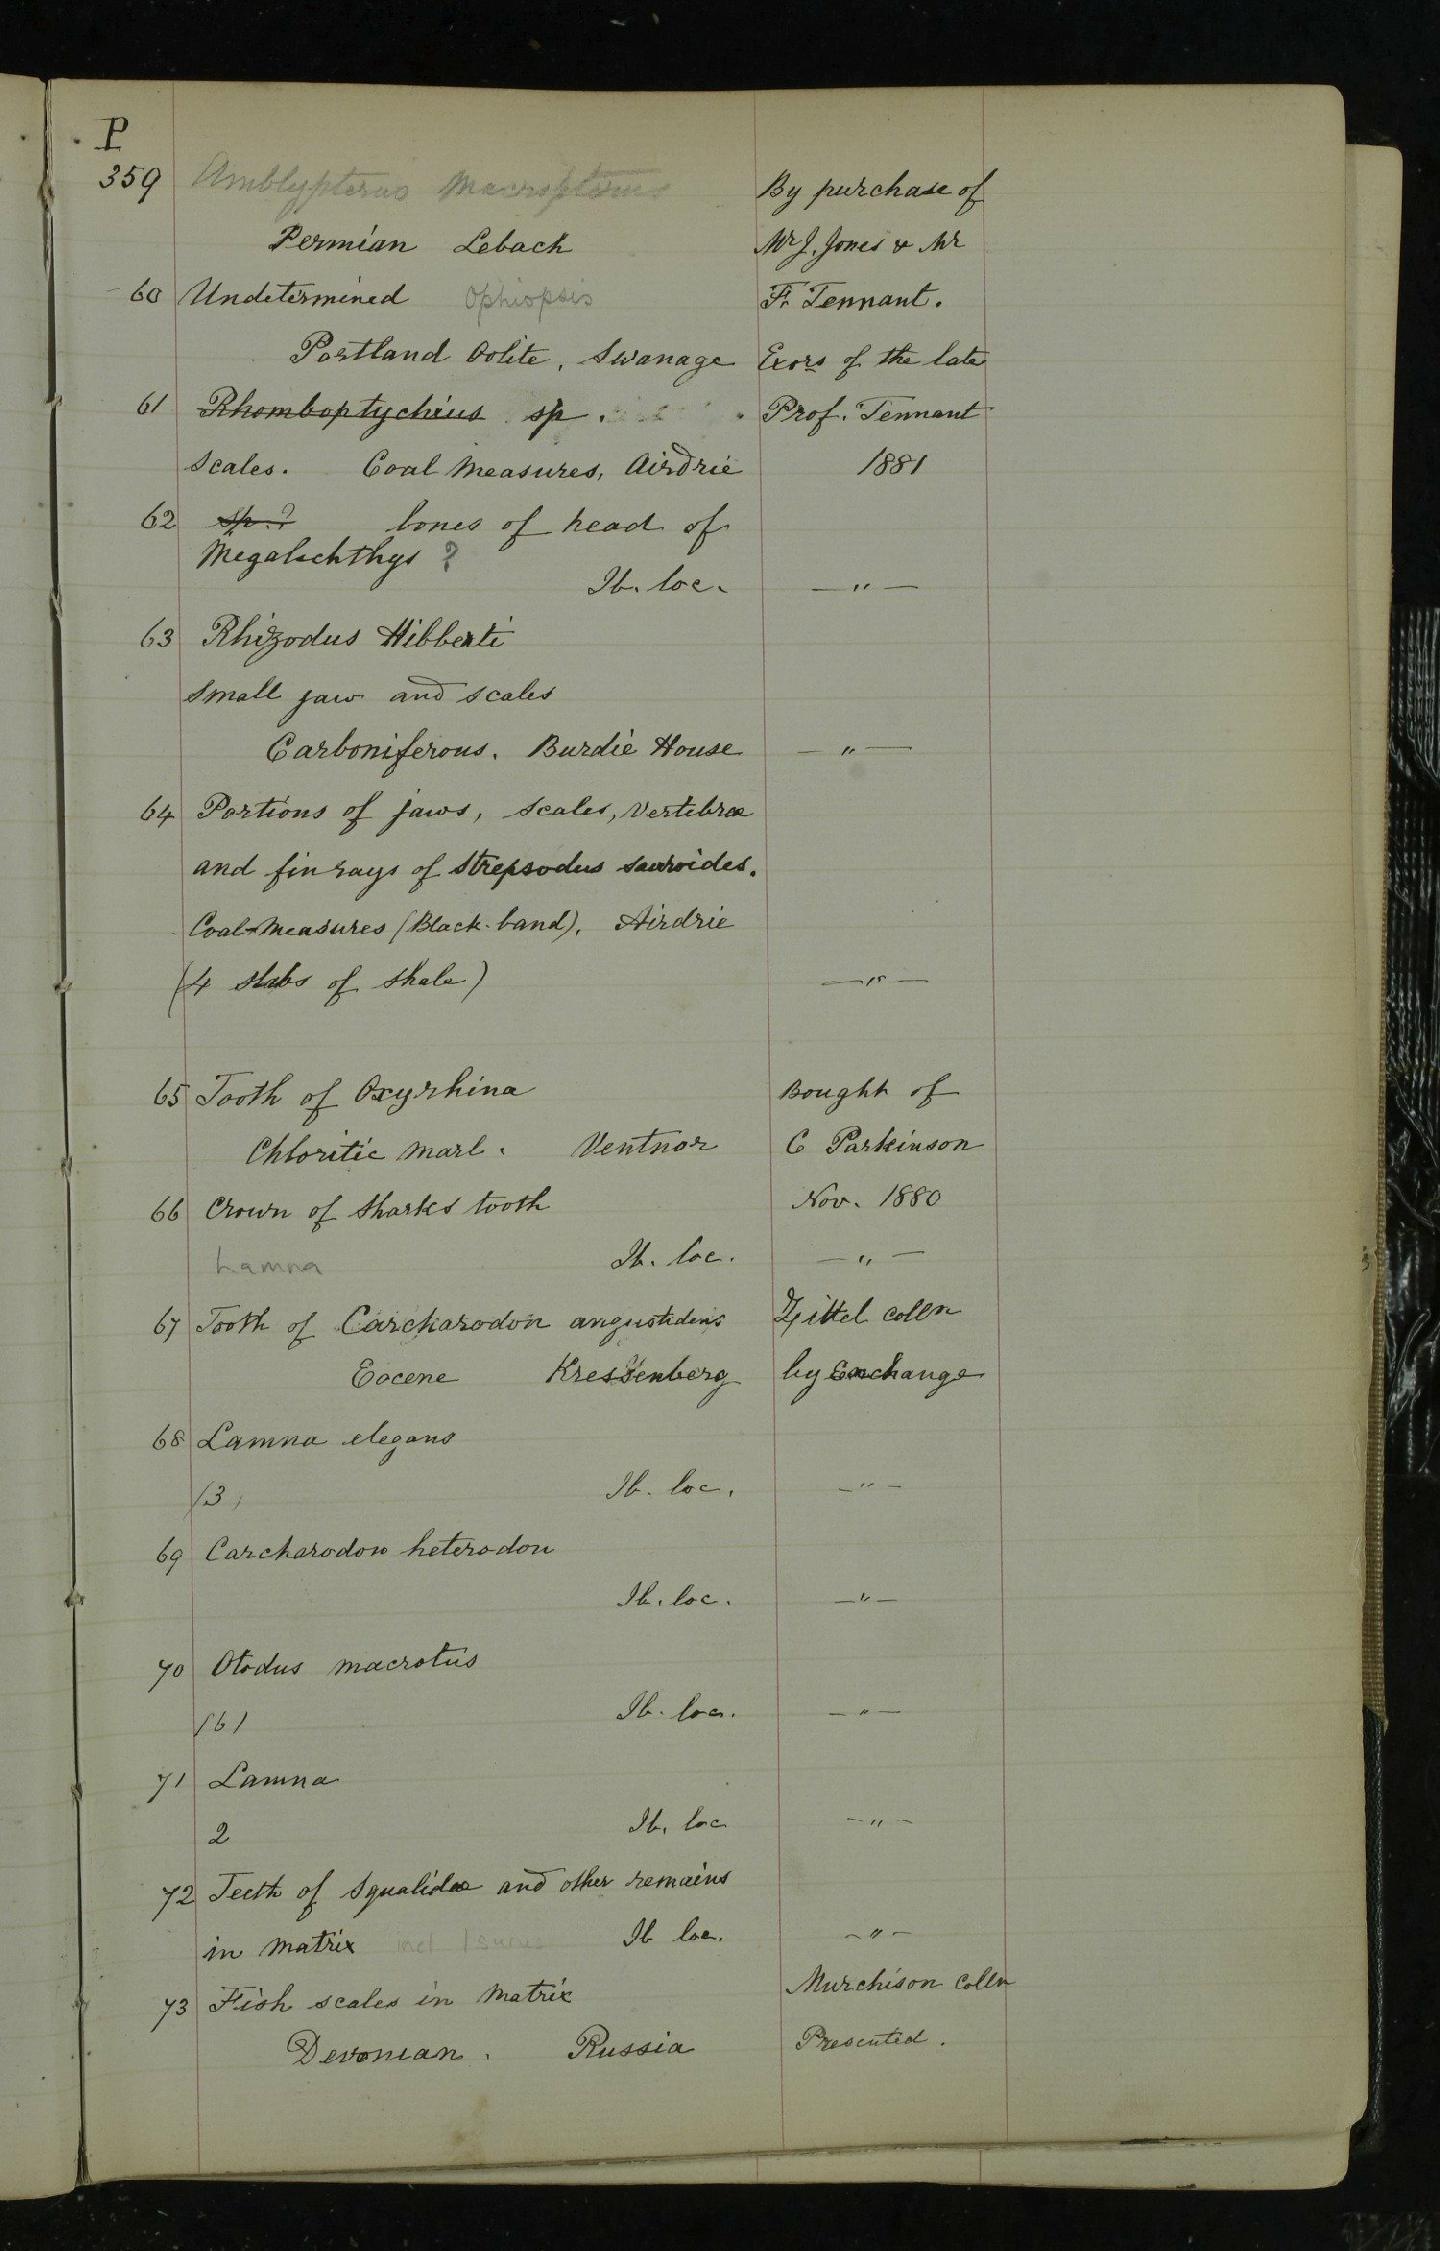 P
359 Amblypterus Macropterus By purchase of
Permian Lebach Mr J. Jones & Mr
60 Undetermined Ophiopsis F. Tennant.
Portland Oolite, Swanage Exors of the late
61 Rhomboptychius sp. Prof. Tennant
Scales. Coal Measures, Airdrie 1881
62 sp.? bones of head of
Megalichthys ?
Ib. loc. — " —
63 Rhizodus Hibberti
Small jaw and scales
Carboniferous. Burdie House — " —
64 Portions of jaws, scales, vertebrae
and fin rays of Strepsodus sauroides.
Coal-Measures (Black-band). Airdrie
(4 slabs of shale) — " —
65 Tooth of Oxyrhina Bought of
Chloritic Marl. Ventnor C Parkinson
66 Crown of Sharks tooth Nov. 1880
Lamna Ib. loc. — " —
67 Tooth of Carcharodon angustidens Zittel colln
Eocene Kressenberg by Exchange
68 Lamna elegans
(3) Ib. loc. — " —
69 Carcharodon heterodon
Ib. loc. — " —
70 Otodus macrotus
(6) Ib. loc. — " —
71 Lamna
2 Ib. loc — " —
72 Teeth of Squalidae and other remains
in Matrix incl Isurus Ib loc. — " —
73 Fish scales in Matrix Murchison Colln
Devonian. Russia Presented.